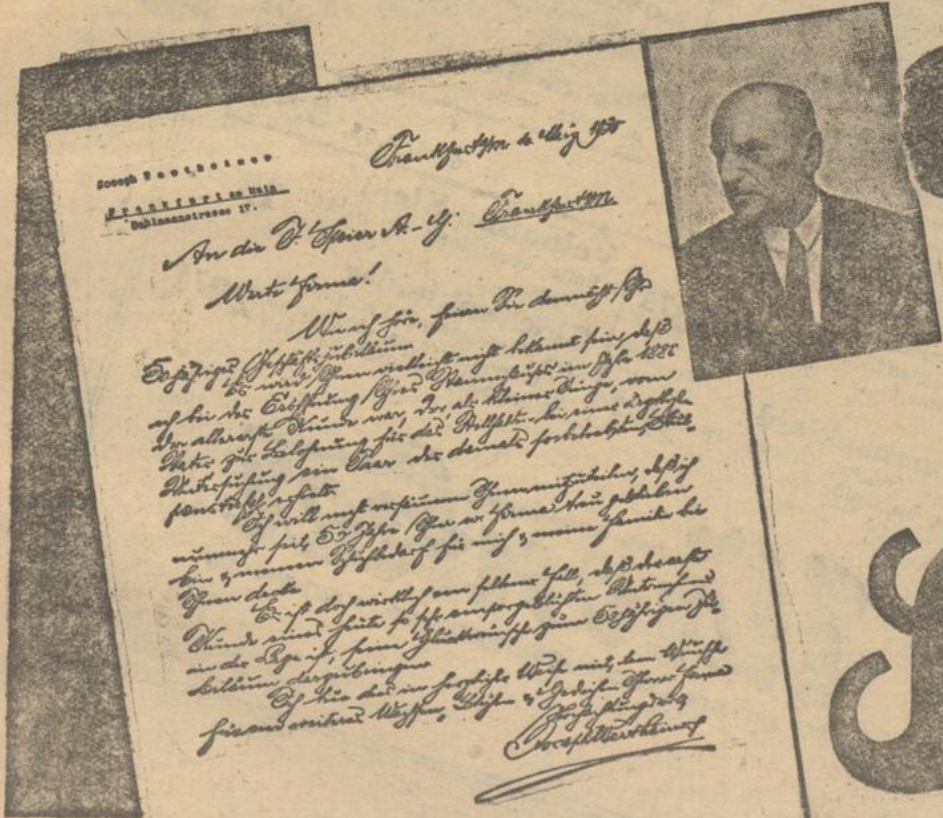 Joseph Wertheimer
Frankfurt am Main
17.
Frankfurt/M. März
An die J. Speier A.-G. Frankfurt/M.
Werte Firma!
Wie ich höre, feiern Sie demnächst Ihr
50 jähriges Geschäftsjubiläum.
Es wird Ihnen vielleicht nicht bekannt sein, daß
ich bei der Eröffnung Ihres Stammhauses im Jahre
der allererste Kunde war, der als kleiner Junge, vom
Vater zur Belohnung für das Stillhalten bei einer
Untersuchung ein Paar der damals
erhielt.
Ich will nicht versäumen Ihnen mitzuteilen, daß ich
nunmehr seit 50 Jahre Ihrer w. Firma treu geblieben
bin & meinen Schuhbedarf für mich & meine Familie bei
Ihnen decke.
Es ist doch wirklich ein seltener Fall, daß der erste
Kunde eines heute so sehr emporgeblühten Unternehmens
in der Lage ist, seine Glückwünsche zum 50 jährigen Ju-
biläum darzubringen.
Ich tue das in herzlichster Weise mit dem Wunsche
für ein weiteres Wachsen, Blühen & Gedeihen Ihrer Firma
Hochachtungsvoll
Joseph Wertheimer